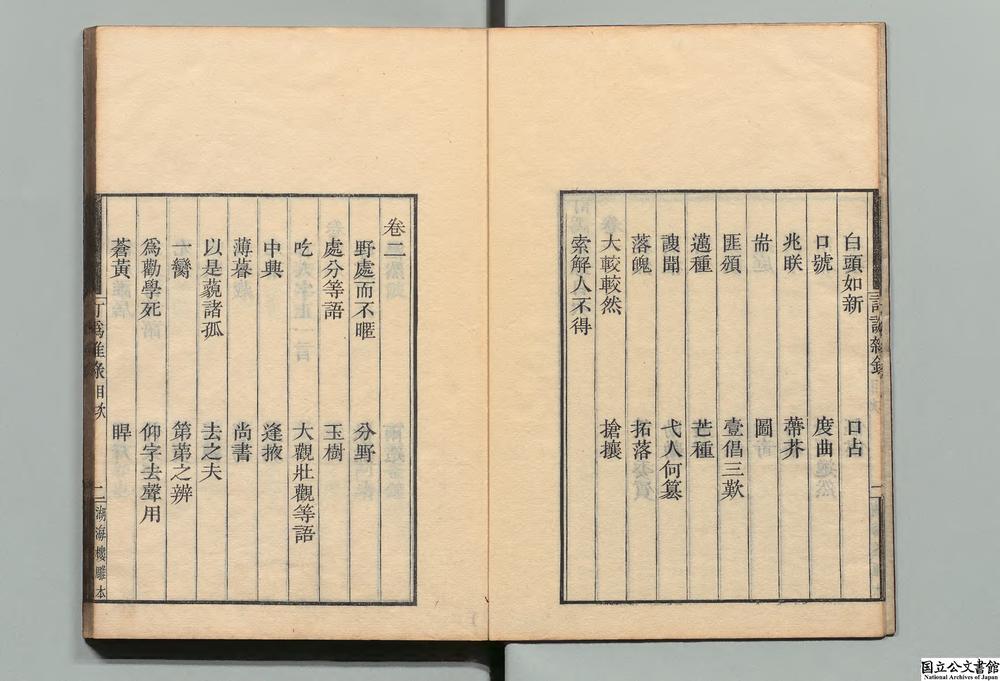 訂譌雜錄
白頭如新 口占
口號 度曲
兆朕 蔕芥
耑 圖
匪頒 壹倡三歎
邁種 芒種
謏聞 弋人何篡
落魄 拓落
大較較然 搶攘
索解人不得
卷二
野處而不暱 分野
處分等語 玉樹
吃 大觀壯觀等語
中興 逢掖
薄暮 尚書
以是藐諸孤 去之夫
一臠 第苐之辨
爲勸學死 仰字去聲用
蒼黃 睅
訂譌雜錄 目次 二 湖海樓雕本
国立公文書館
National Archives of Japan